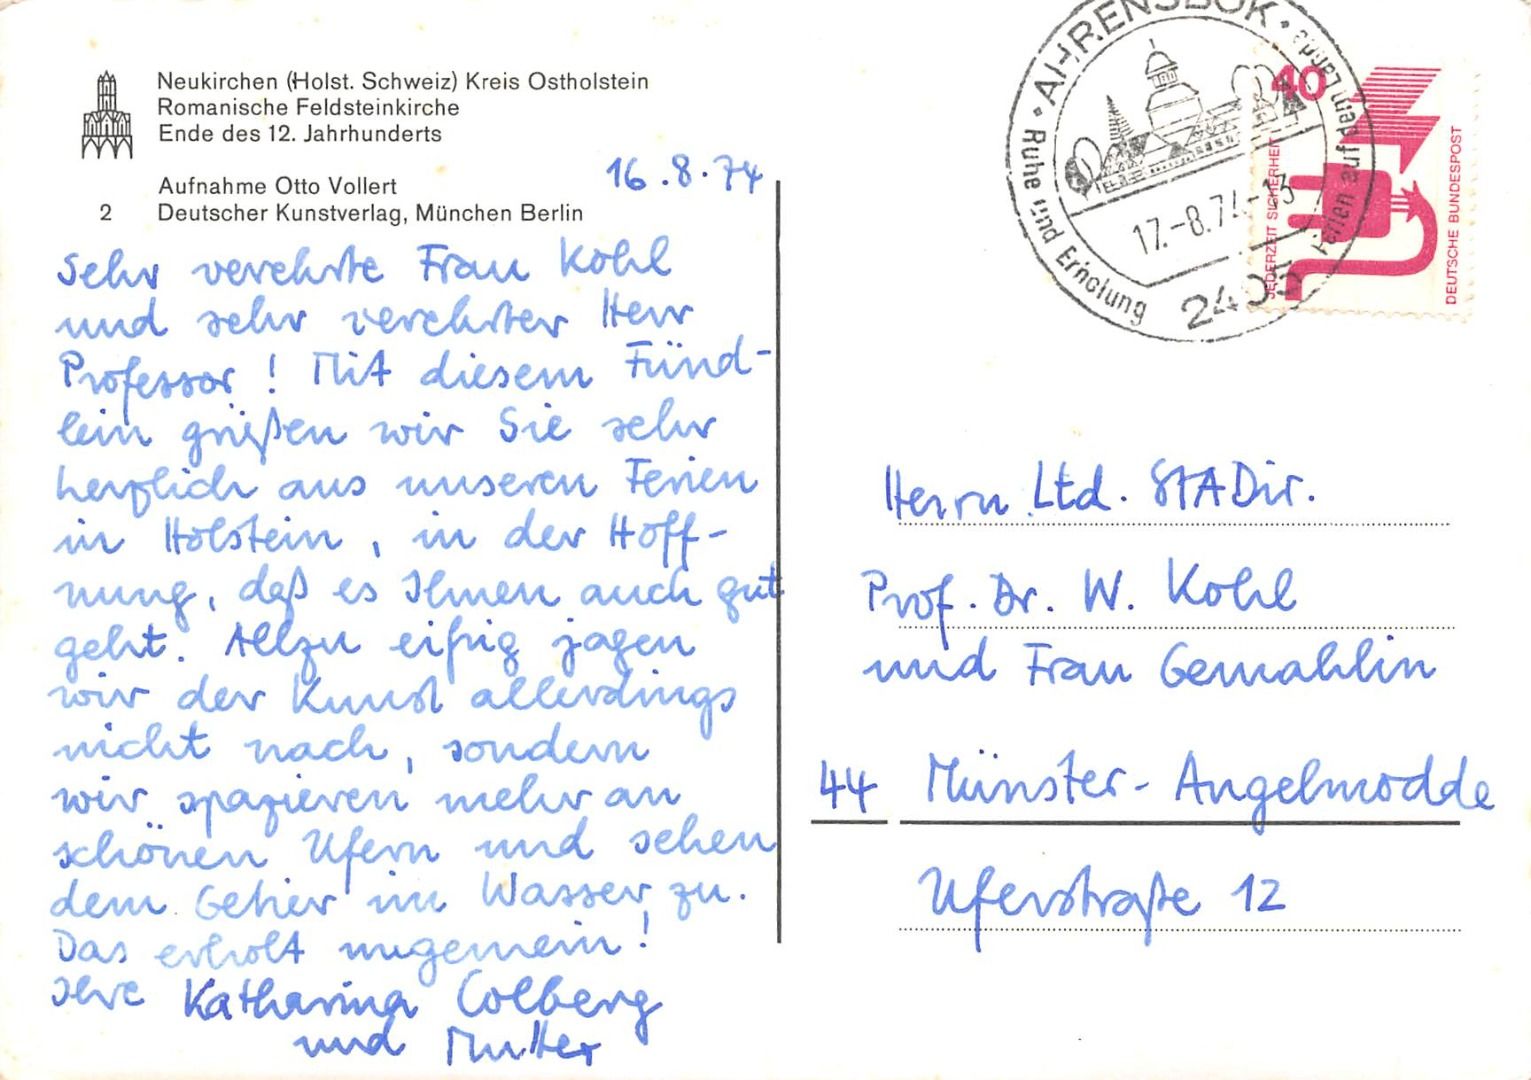 Neukirchen (Holst. Schweiz) Kreis Ostholstein
Romanische Feldsteinkirche
Ende des 12. Jahrhunderts
Aufnahme Otto Vollert
2 Deutscher Kunstverlag, München Berlin
16.8.74
Sehr verehrte Frau Kohl
und sehr verehrter Herr
Professor! Mit diesem Fünd-
lein grüßen wir Sie sehr
herzlich aus unseren Ferien
in Holstein, in der Hoff-
nung, daß es Ihnen auch gut
geht. Allzu eifrig jagen
wir der Kunst allerdings
nicht nach, sondern
wir spazieren mehr an
schönen Ufern und sehen
dem Getier im Wasser zu.
Das erholt ungemein!
Ihre Katharina Colberg
und Mutter
AHRENSBÖK
Ruhe und Erholung
Ferien auf dem Lande
17.-8.74-13
2405
40
JEDERZEIT SICHERHEIT
DEUTSCHE BUNDESPOST
Herrn Ltd. StADir.
Prof. Dr. W. Kohl
und Frau Gemahlin
44 Münster-Angelmodde
Uferstraße 12